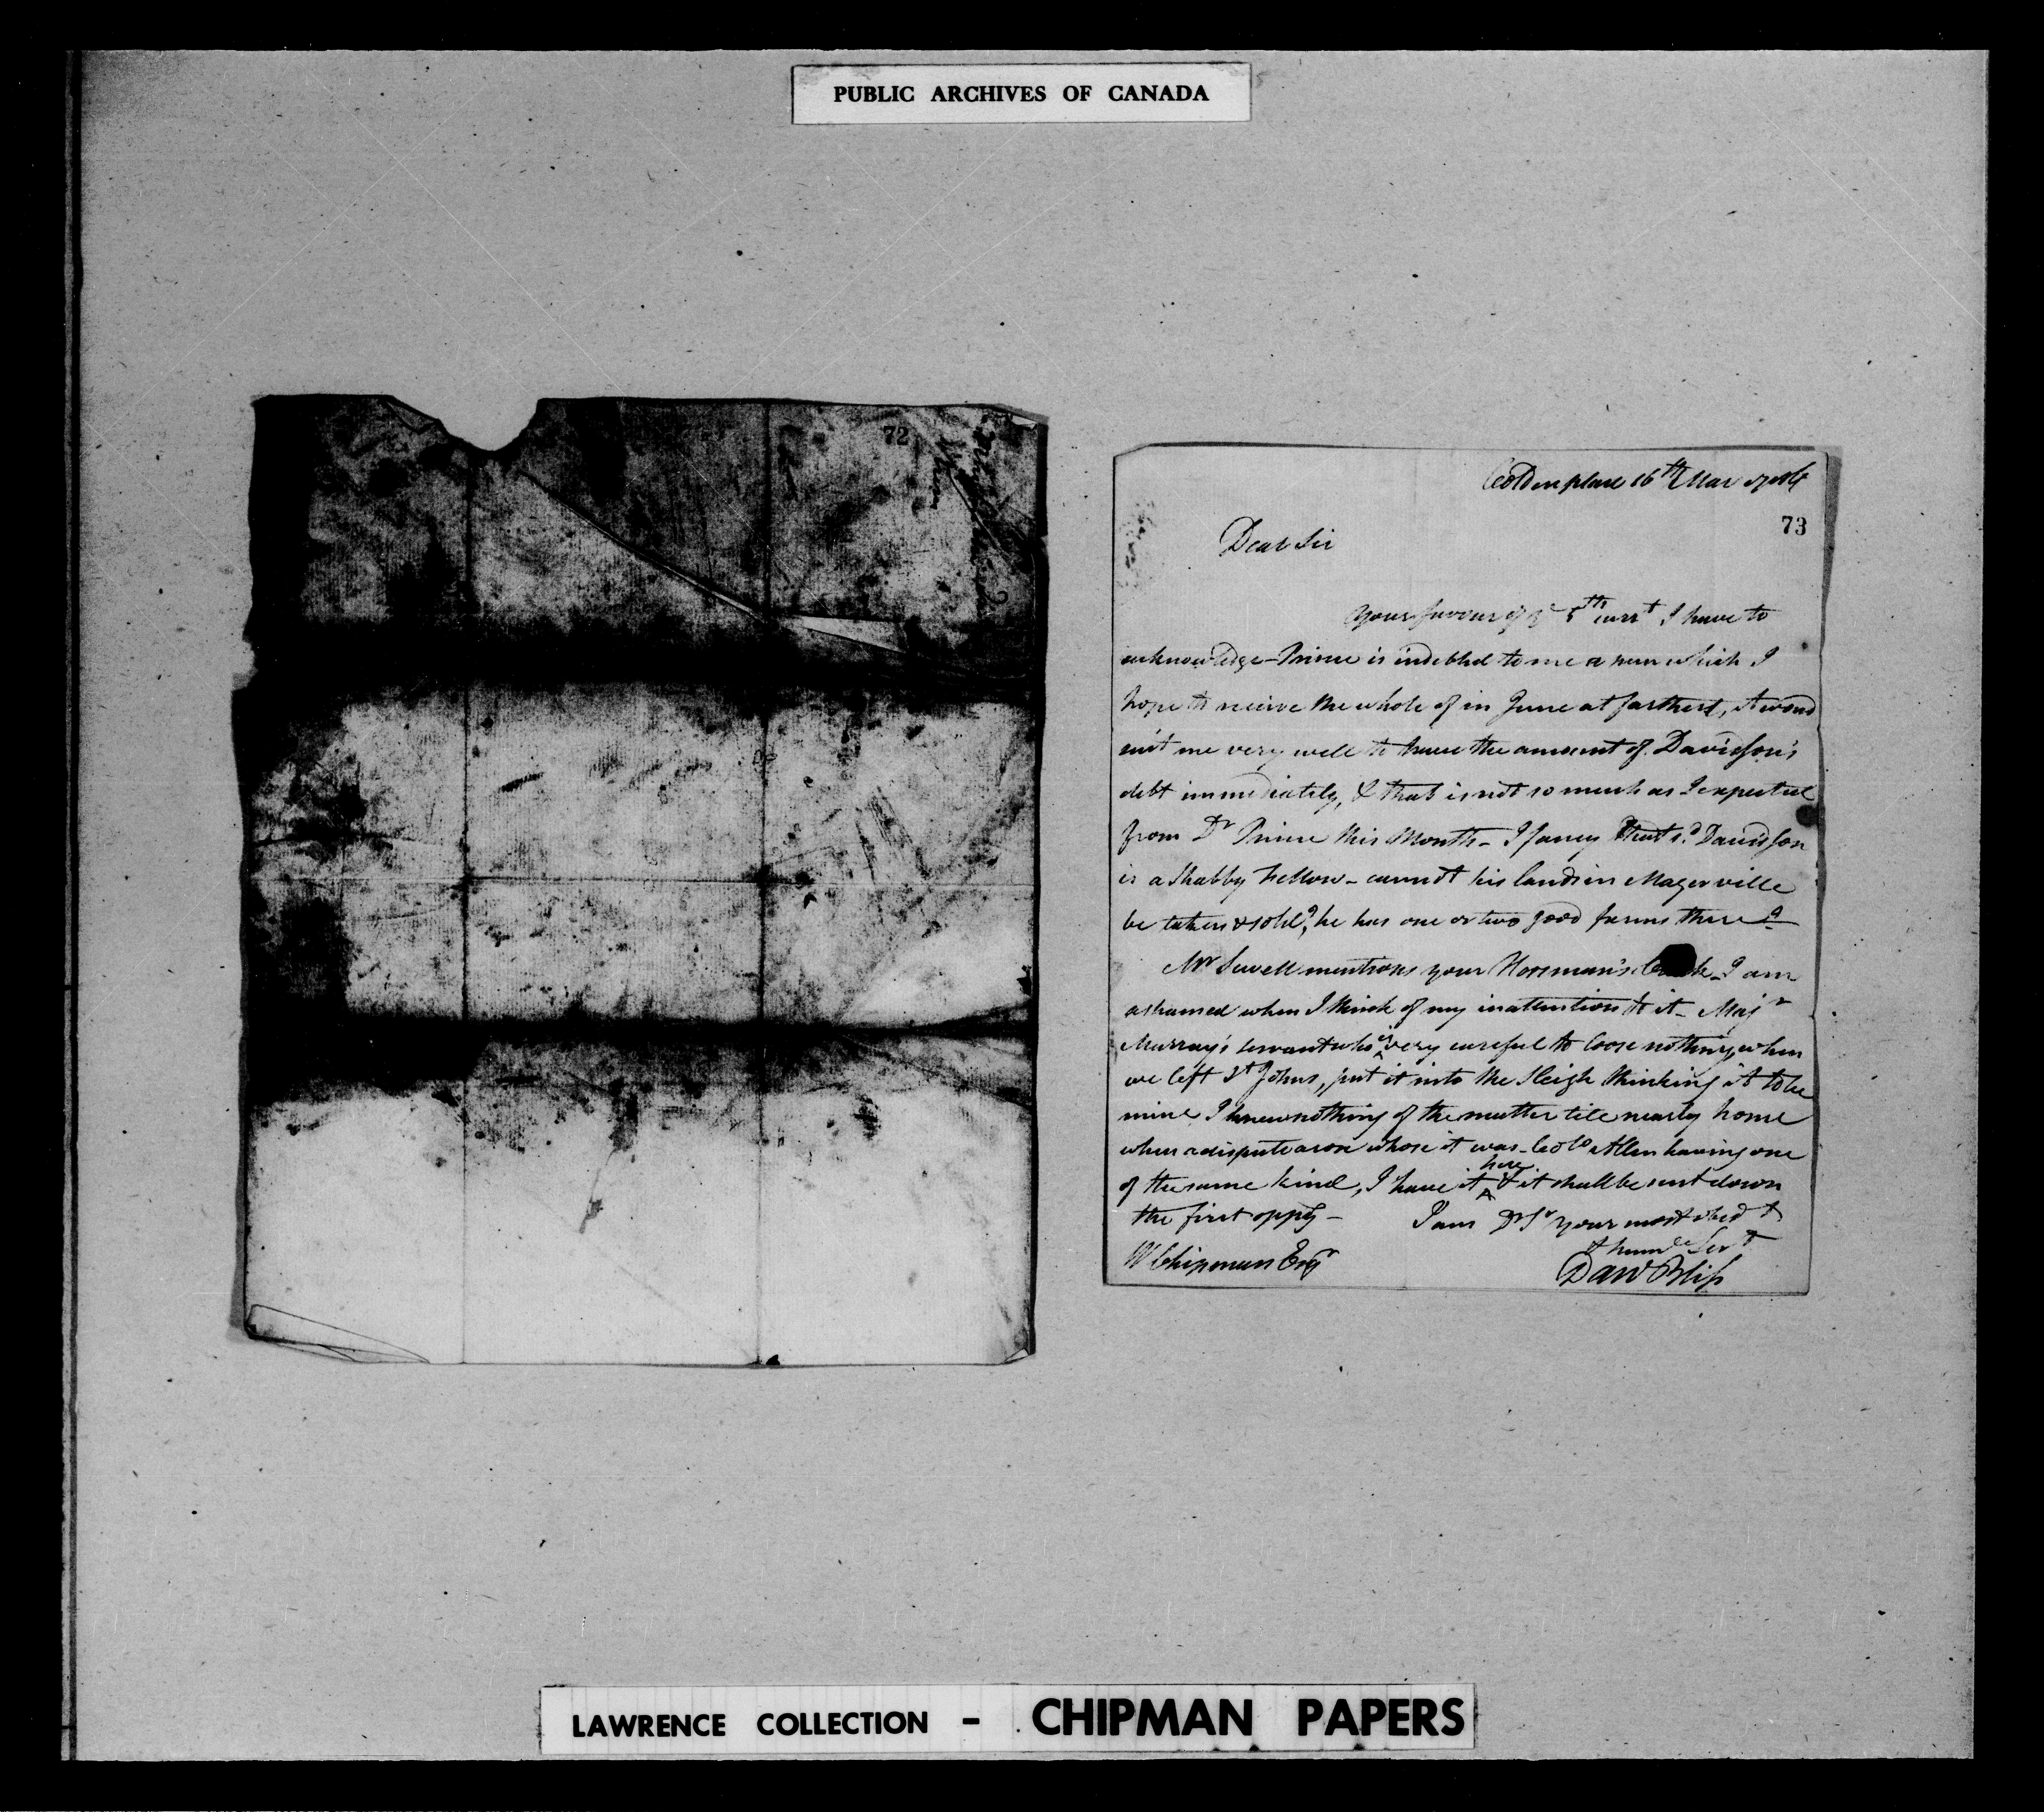 PUBLIC ARCHIVES OF CANADA
72
16th Mar
73
Dear Sir
Your favour of ye 5th currt I have to
acknowledge - Prince is indebted to me a sum which I
hope to receive the whole of in June at farthest, it woud
suit me very well to have the amount of Davidson's
debt immediately, & that is not so much as I expected
from Dr Prince this Month - I fancy that sd. Davidson
is a Shabby Fellow - cannot his lands in Magerville
be taken & sold, he has one or two good farms there?
Mr Sewell mentions your Horsman's - I am
ashamed when I think of my inattention to it - Majr
Murray's servant who is very careful to loose nothing, when
we left St Johns, put it into the Sleigh thinking it to be
mine I knew nothing of the matter till nearly home
when a dispute arose whose it was - Colo Allen having one
of the same kind, I have it here & it shall be sent down
the first oppty -
I am Dr Sr your most obedt
& humle Servt
W Chipman Esqr
Danl Bliss
LAWRENCE COLLECTION - CHIPMAN PAPERS